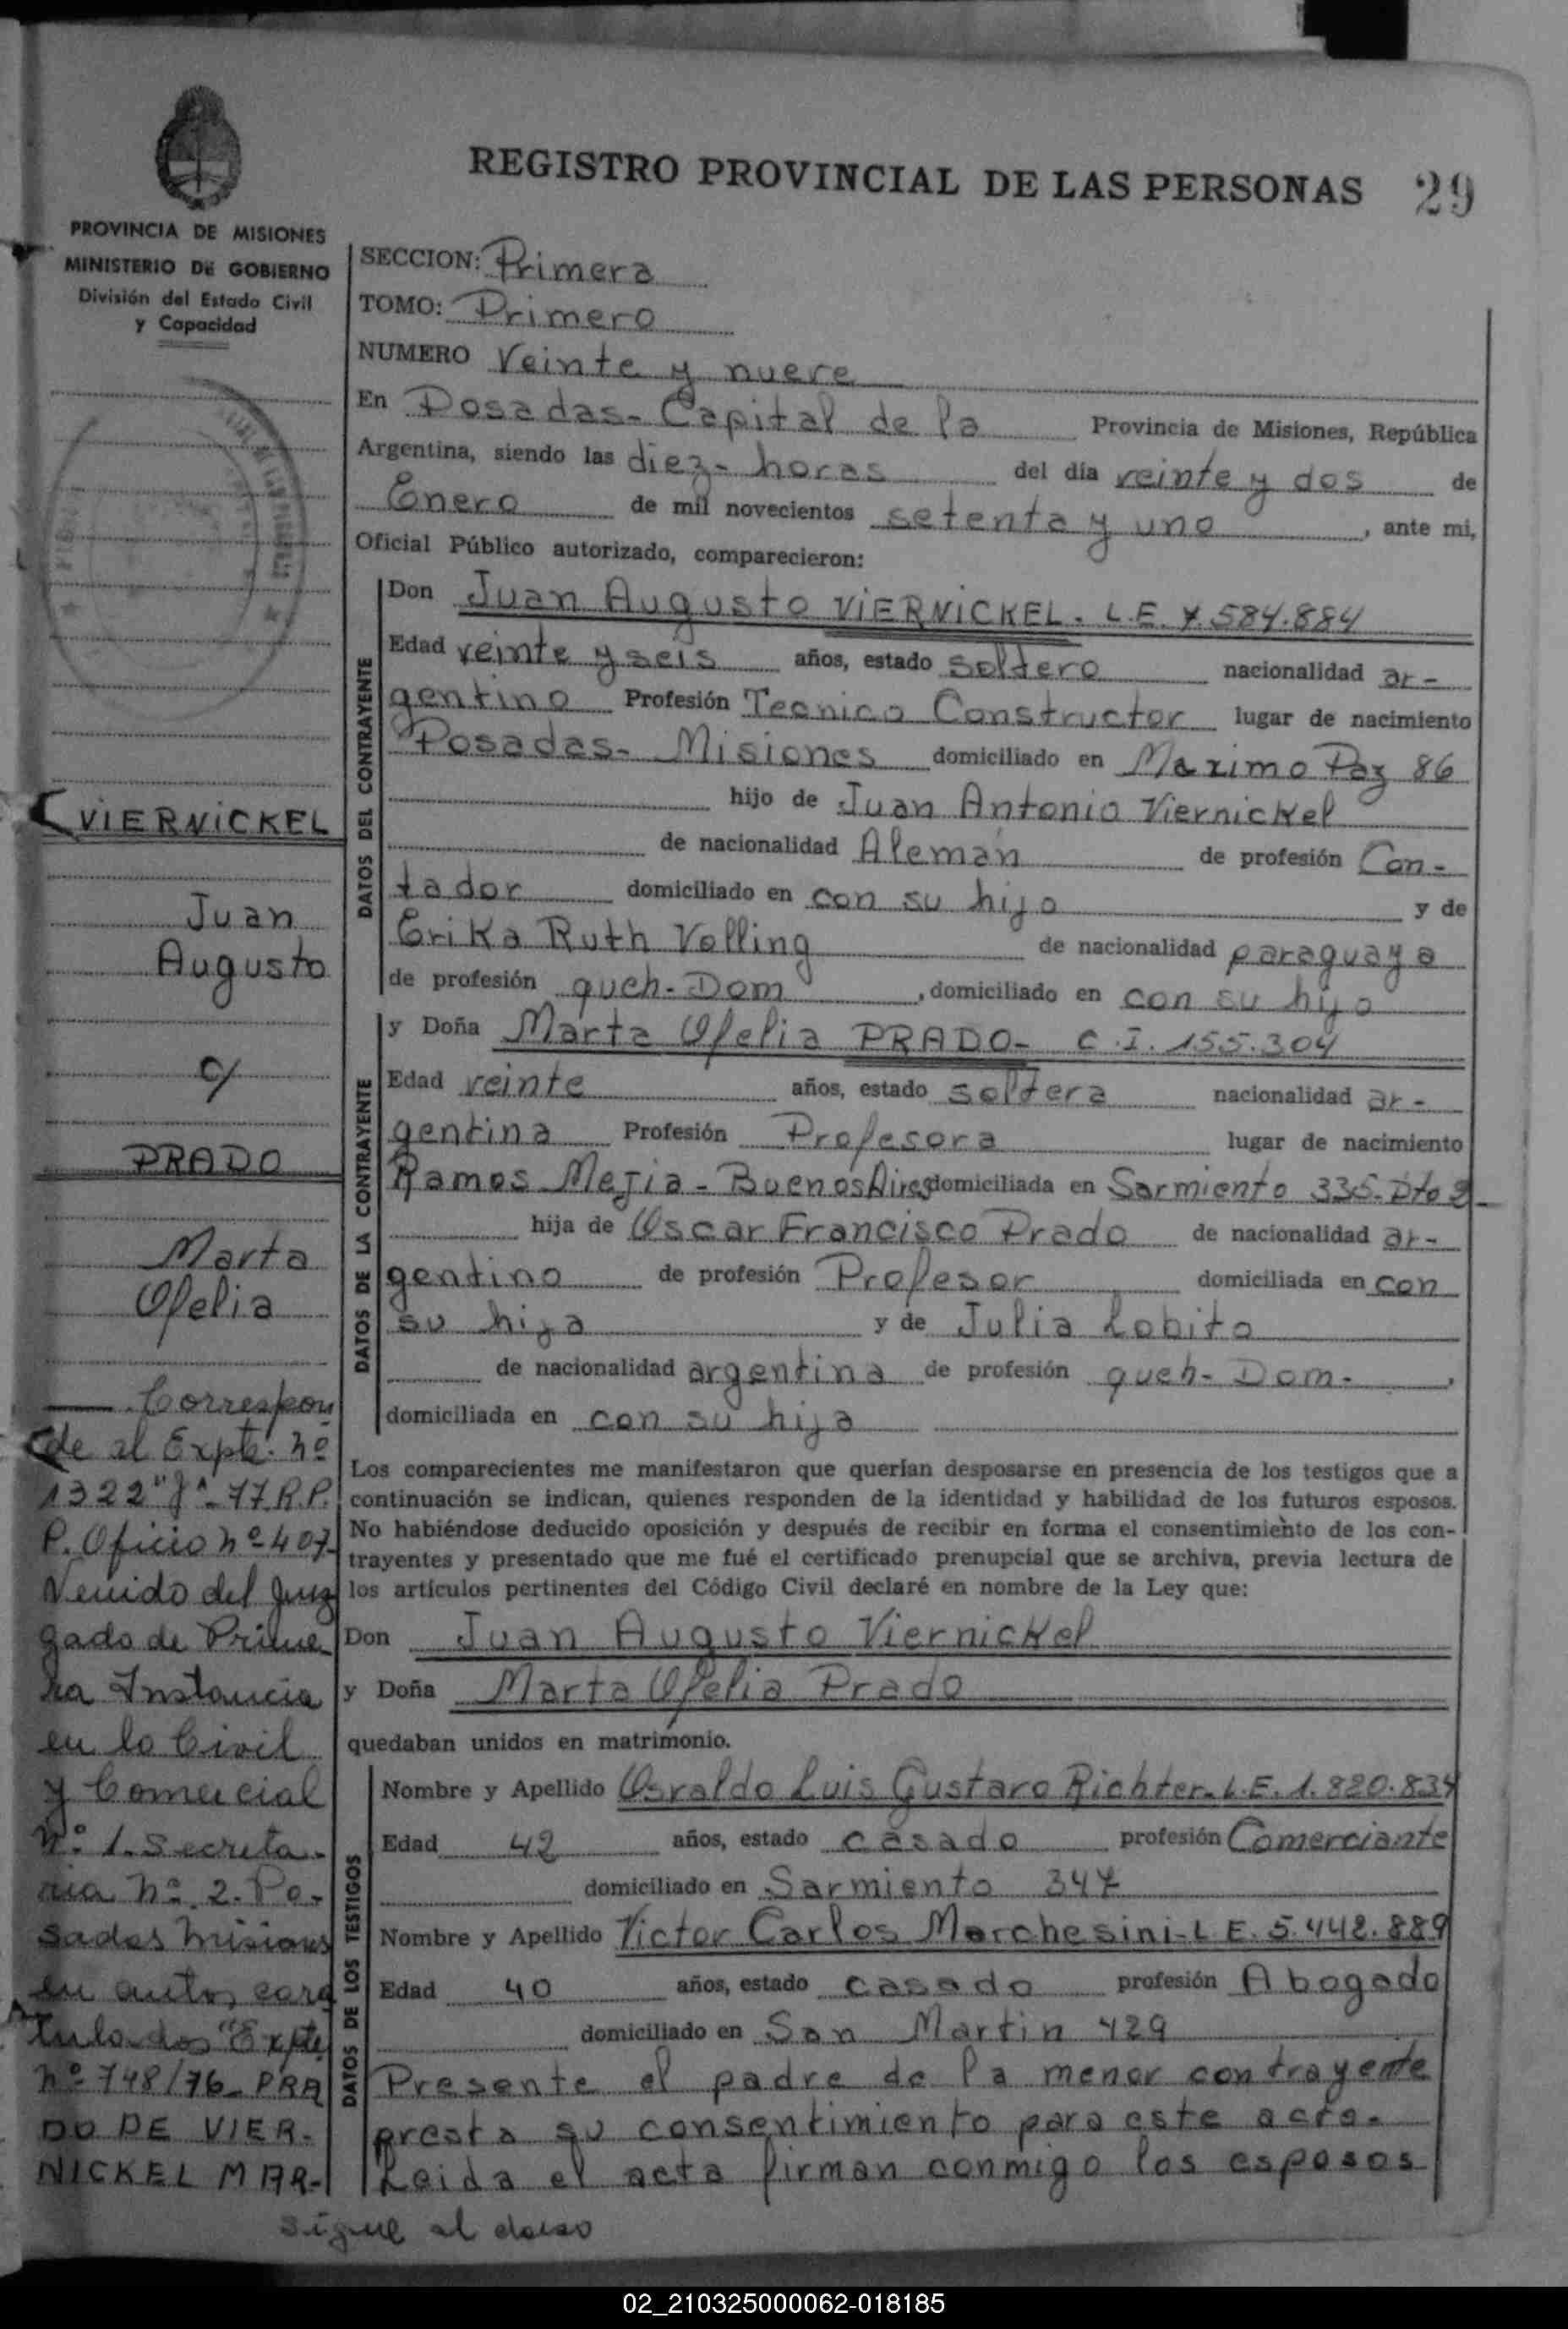 REGISTRO PROVINCIAL DE LAS PERSONAS 29
PROVINCIA DE MISIONES
MINISTERIO DE GOBIERNO
División del Estado Civil
y Capacidad
VIERNICKEL
Juan
Augusto
c/
PRADO
Marta
Ofelia
Correspon
de al Expte. nº
1322 77 R.P.
P. Oficio nº 407-
Venido del Juz
gado de Prime
ra Instancia
en lo Civil
y Comercial
nº 1. Secreta-
ria nº 2. Po-
sadas Misiones
en autos cara
tulados "Expte
nº 748/76 PRA
DO DE VIER-
NICKEL MAR-
SECCION: Primera
TOMO: Primero
NUMERO Veinte y nueve
En Posadas- Capital de la Provincia de Misiones, República
Argentina, siendo las diez- horas del día veinte y dos de
Enero de mil novecientos setenta y uno, ante mi,
Oficial Público autorizado, comparecieron:
DATOS DEL CONTRAYENTE
Don Juan Augusto VIERNICKEL. L.E. 7.584.884
Edad veinte y seis años, estado soltero nacionalidad ar-
gentino Profesión Tecnico Constructor lugar de nacimiento
Posadas- Misiones domiciliado en Maximo Paz 86
hijo de Juan Antonio Viernickel
de nacionalidad Alemán de profesión Con-
tador domiciliado en con su hijo y de
Erika Ruth Volling de nacionalidad paraguaya
de profesión queh-Dom, domiciliado en con su hijo
DATOS DE LA CONTRAYENTE
y Doña Marta Ofelia PRADO- C.I. 155.304
Edad veinte años, estado soltera nacionalidad ar-
gentina Profesión Profesora lugar de nacimiento
Ramos Mejia- Buenos Aires domiciliada en Sarmiento 335- Dto
hija de Oscar Francisco Prado de nacionalidad ar-
gentino de profesión Profesor domiciliada en con
su hija y de Julia Lobito
de nacionalidad argentina de profesión queh- Dom-,
domiciliada en con su hija
Los comparecientes me manifestaron que querían desposarse en presencia de los testigos que a
continuación se indican, quienes responden de la identidad y habilidad de los futuros esposos.
No habiéndose deducido oposición y después de recibir en forma el consentimiento de los con-
trayentes y presentado que me fué el certificado prenupcial que se archiva, previa lectura de
los artículos pertinentes del Código Civil declaré en nombre de la Ley que:
Don Juan Augusto Viernickel
y Doña Marta Ofelia Prado
quedaban unidos en matrimonio.
DATOS DE LOS TESTIGOS
Nombre y Apellido Osvaldo Luis Gustavo Richter- L.E. 1.820.834
Edad 42 años, estado casado profesión Comerciante
domiciliado en Sarmiento 347
Nombre y Apellido Victor Carlos Marchesini- L E. 5.442.889
Edad 40 años, estado casado profesión Abogado
domiciliado en San Martin 429
Presente el padre de la menor contrayente
presta su consentimiento para este acto.
Leida el acta firman conmigo los esposos
sigue al dorso
02_210325000062-018185